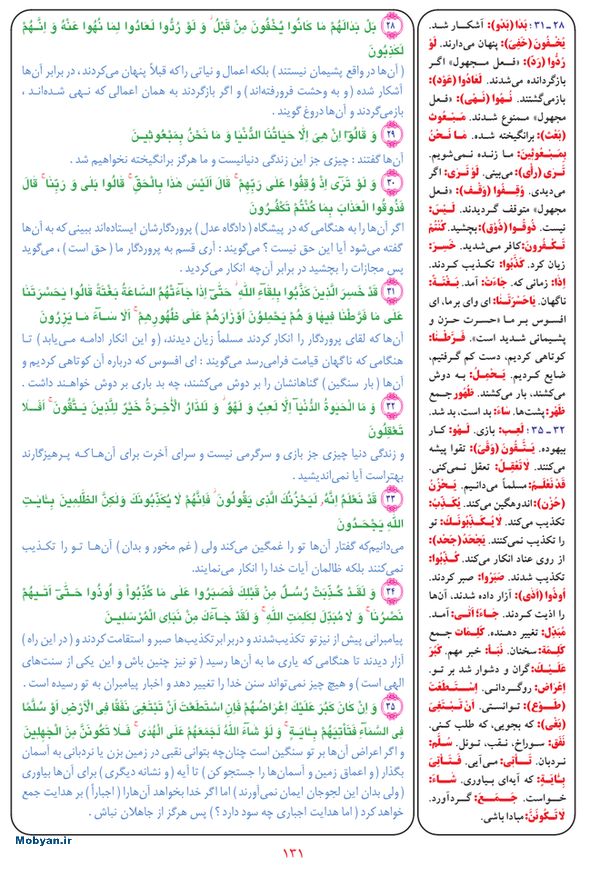 ۲۸ بَلْ بَدَالَهُمْ مَا كَانُوا يُخْفُونَ مِنْ قَبْلُ ۖ وَ لَوْ رُدُّوا لَعَادُوا لِمَا نُهُوا عَنْهُ وَ اِنَّهُمْ
لَكَاذِبُونَ
( آن‌ها در واقع پشیمان نیستند ) بلکه اعمال و نیاتی را که قبلاً پنهان می‌کردند، در برابر آن‌ها
آشکار شده ( و به وحشت فرورفته‌اند ) و اگر بازگردند به همان اعمالی که نهی شده‌اند ،
بازمی‌گردند و آن‌ها دروغ گویند .
۲۹ وَ قَالُوٓا اِنْ هِیَ اِلَّا حَیَاتُنَا الدُّنْیَا وَ مَا نَحْنُ بِمَبْعُوثینَ
آن‌ها گفتند : چیزی جز این زندگی دنیانیست و ما هرگز برانگیخته نخواهیم شد .
۳۰ وَ لَوْ تَرٰٓی اِذْ وُقِفُوا عَلٰی رَبِّهِمْ ۚ قَالَ اَلَیْسَ هٰذَا بِالْحَقِّ ۚ قَالُوا بَلٰی وَ رَبِّنَا ۚ قَالَ
فَذُوقُوا الْعَذَابَ بِمَا كُنْتُمْ تَكْفُرُونَ
اگر آن‌ها را به هنگامی که در پیشگاه ( دادگاه عدل ) پروردگارشان ایستاده‌اند ببینی که به آن‌ها
گفته می‌شود آیا این حق نیست ؟ می‌گویند : آری قسم به پروردگار ما ( حق است ) ، می‌گوید
پس مجازات را بچشید در برابر آن‌چه انکار می‌کردید .
۳۱ قَدْ خَسِرَ الَّذینَ كَذَّبُوا بِلِقَآءِ اللهِ ۖ حَتّٰٓی اِذَا جَآءَتْهُمُ السَّاعَةُ بَغْتَةً قَالُوا یَحَسْرَتَنَا
عَلٰی مَا فَرَّطْنَا فِیهَا وَ هُمْ یَحْمِلُونَ اَوْزَارَهُمْ عَلٰی ظُهُورِهِمْ ۚ اَلَا سَآءَ مَا یَزِرُونَ
آن‌ها که لقای پروردگار را انکار کردند مسلماً زیان دیدند، ( و این انکار ادامه می‌یابد ) تا
هنگامی که ناگهان قیامت فرامی‌رسد می‌گویند : ای افسوس که درباره آن کوتاهی کردیم و
آن‌ها ( بار سنگین ) گناهانشان را بر دوش می‌کشند، چه بد باری بر دوش خواهند داشت .
۳۲ وَ مَا الْحَیٰوةُ الدُّنْیَآ اِلَّا لَعِبٌ وَ لَهْوٌ ۖ وَ لَلدَّارُ الْاٰخِرَةُ خَیْرٌ لِلَّذینَ یَتَّقُونَ ۗ اَفَلَا
تَعْقِلُونَ
و زندگی دنیا چیزی جز بازی و سرگرمی نیست و سرای آخرت برای آن‌ها که پرهیزگارند
بهتراست آیا نمی‌اندیشید .
۳۳ قَدْ نَعْلَمُ اِنَّهُ لَیَحْزُنُكَ الَّذی یَقُولُونَ ۖ فَاِنَّهُمْ لَا یُكَذِّبُونَكَ وَلٰكِنَّ الظّٰلِمینَ بِـٔایَاتِ
اللهِ یَجْحَدُونَ
می‌دانیم‌که گفتار آن‌ها تو را غمگین می‌کند ولی ( غم مخور و بدان ) آن‌ها تو را تکذیب
نمی‌کنند بلکه ظالمان آیات خدا را انکار می‌نمایند.
۳۴ وَ لَقَدْ كُذِّبَتْ رُسُلٌ مِنْ قَبْلِكَ فَصَبَرُوا عَلٰی مَا كُذِّبُوا وَ اُوذُوا حَتّٰٓی اَتٰیهُمْ
نَصْرُنَا ۚ وَ لَا مُبَدِّلَ لِكَلِمٰتِ اللهِ ۚ وَ لَقَدْ جَآءَكَ مِنْ نَبَایِ الْمُرْسَلینَ
پیامبرانی پیش از نیز تو تکذیب‌شدند و دربرابر تکذیب‌ها صبر و استقامت کردند و ( در این راه )
آزار دیدند تا هنگامی که یاری ما به آن‌ها رسید ( تو نیز چنین باش و این یکی از سنت‌های
الهی است ) و هیچ چیز نمی‌تواند سنن خدا را تغییر دهد و اخبار پیامبران به تو رسیده است .
۳۵ وَ اِنْ كَانَ كَبُرَ عَلَیْكَ اِعْرَاضُهُمْ فَاِنِ اسْتَطَعْتَ اَنْ تَبْتَغِیَ نَفَقًا فِی الْاَرْضِ اَوْ سُلَّمًا
فِی السَّمَآءِ فَتَاْتِیَهُمْ بِـٔایَةٍ ۚ وَ لَوْ شَآءَ اللهُ لَجَمَعَهُمْ عَلَی الْهُدٰی ۚ فَلَا تَكُونَنَّ مِنَ الْجٰهِلینَ
و اگر اعراض آن‌ها بر تو سنگین است چنان‌چه بتوانی نقبی در زمین بزن یا نردبانی به آسمان
بگذار ( و اعماق زمین و آسمان‌ها را جستجو کن ) تا آیه ( و نشانه دیگری ) برای آن‌ها بیاوری
( ولی بدان این لجوجان ایمان نمی‌آورند ) اما اگر خدا بخواهد آن‌ها را ( اجباراً ) بر هدایت جمع
خواهد کرد ( اما هدایت اجباری چه سود دارد ؟ ) پس هرگز از جاهلان نباش .
۲۸ ـ ۳۱ : بَدَا (بَدْو): آشکار شد.
یُخْفُونَ (خَفِیَ): پنهان می‌دارند. لَوْ
رُدُّوا (رَدّ): «فعل مجهول» اگر
بازگردانده می‌شدند. لَعَادُوا (عَوْد):
بازمی‌گشتند. نُهُوا (نَهْی): «فعل
مجهول» ممنوع شدند. مَبْعُوث
(بَعْث): برانگیخته شده. مَا نَحْنُ
بِمَبْعُوثینَ: ما زنده نمی‌شویم.
تَری (رَأی): می‌بینی. لَوْ تَری: اگر
می‌دیدی. وُقِفُوا (وَقْف): «فعل
مجهول» متوقف گردیدند. لَیْسَ:
نیست. ذُوقُوا (ذَوْق): بچشید. كُنْتُمْ
تَكْفُرُونَ: کافر می‌شدید. خَسِرَ:
زیان کرد. كَذَّبُوا: تکذیب کردند.
اِذَا: زمانی که. جَاءَتْ: آمد. بَغْتَةً:
ناگهان. یَاحَسْرَتَنَا: ای وای برما، ای
افسوس بر ما «حسرت حزن و
پشیمانی شدید است». فَرَّطْنَا:
کوتاهی کردیم، دست کم گرفتیم،
ضایع کردیم. یَحْمِلُ: به دوش
می‌کشند، بار می‌کشند. ظُهُور جمع
ظَهْر: پشت‌ها. سَاءَ: بد است، بد شد.
۳۲ ـ ۳۵ : لَعِب: بازی. لَهْو: کار
بیهوده. یَتَّقُونَ (وَقَیَ): تقوا پیشه
می‌کنند. لَا تَعْقِلُ: تعقل نمی‌کنی.
قَدْ نَعْلَمُ: مسلماً می‌دانیم. یَحْزُنُ
(حُزْن): اندوهگین می‌کند. یُكَذِّبُ:
تکذیب می‌کند. لَا یُكَذِّبُونَكَ: تو
را تکذیب نمی‌کنند. یَجْحَدُ (جَحْد):
از روی عناد انکار می‌کند. كُذِّبُوا:
تکذیب شدند. صَبَرُوا: صبر کردند.
اُوذُوا (اَذٰی): آزار داده شدند، آن‌ها
را اذیت کردند. جَاءَ؛ اَتٰی: آمد.
مُبَدِّل: تغییر دهنده. كَلِمَات جمع
كَلِمَة: سخنان. نَبَأ: خبر مهم. كَبُرَ
عَلَیْكَ: گران و دشوار شد بر تو.
اِعْرَاض: روگردانی. اِسْتَطَعْتَ
(طَوْع): توانستی. اَنْ تَبْتَغِیَ
(بَغْی): که بجویی، که طلب کنی.
نَفَق: سوراخ، نقب، تونل. سُلَّم:
نردبان. تَأْتی: می‌آیی. فَتَأْتِیَ
بِـٔایَةٍ: که آیه‌ای بیاوری. شَاءَ:
خواست. جَمَعَ: گردآورد.
لَا تَكُونَنَّ: مبادا باشی.
Mobyan.ir
۱۳۱